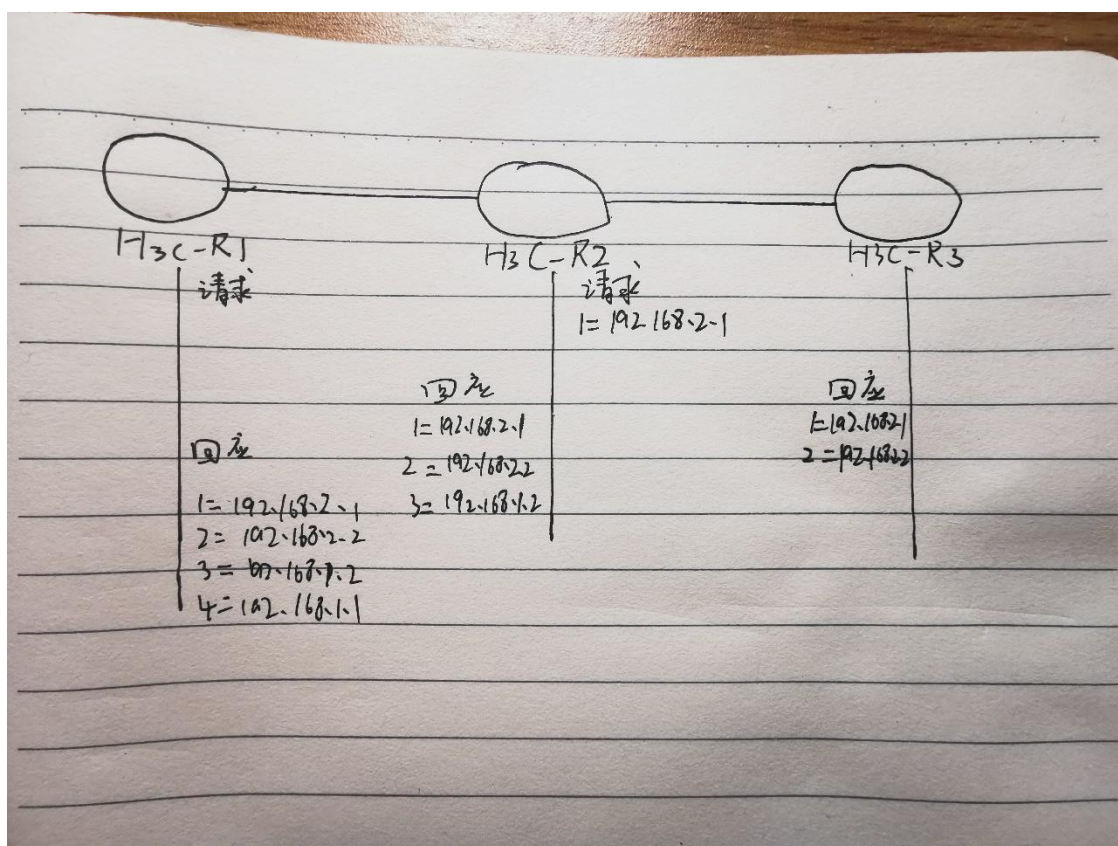 H3C-R1
请求
回应
1=192.168.2.1
2=192.168.2.2
3=192.168.1.2
4=192.168.1.1
H3C-R2
请求
1=192 168.2-1
回应
1=192.168.2.1
2=192.168.2.2
3=192.168.1.2
H3C-R3
回应
1=192.168.2.1
2=192.168.2.2